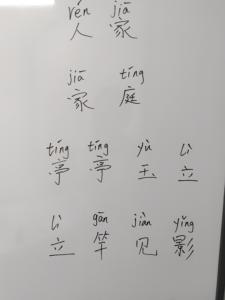 rén jiā
人 家
jiā tíng
家 庭
tíng tíng yù lì
亭 亭 玉 立
lì gān jiàn yǐng
立 竿 见 影